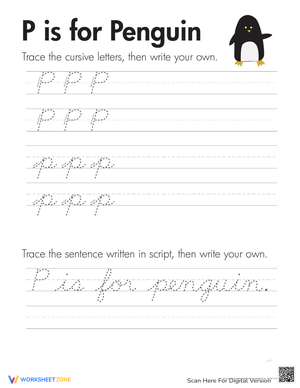 P is for Penguin
Trace the cursive letters, then write your own.
P P P
P P P
p p p
p p p
Trace the sentence written in script, then write your own.
P is for penguin.
WORKSHEETZONE
Scan Here For Digital Version